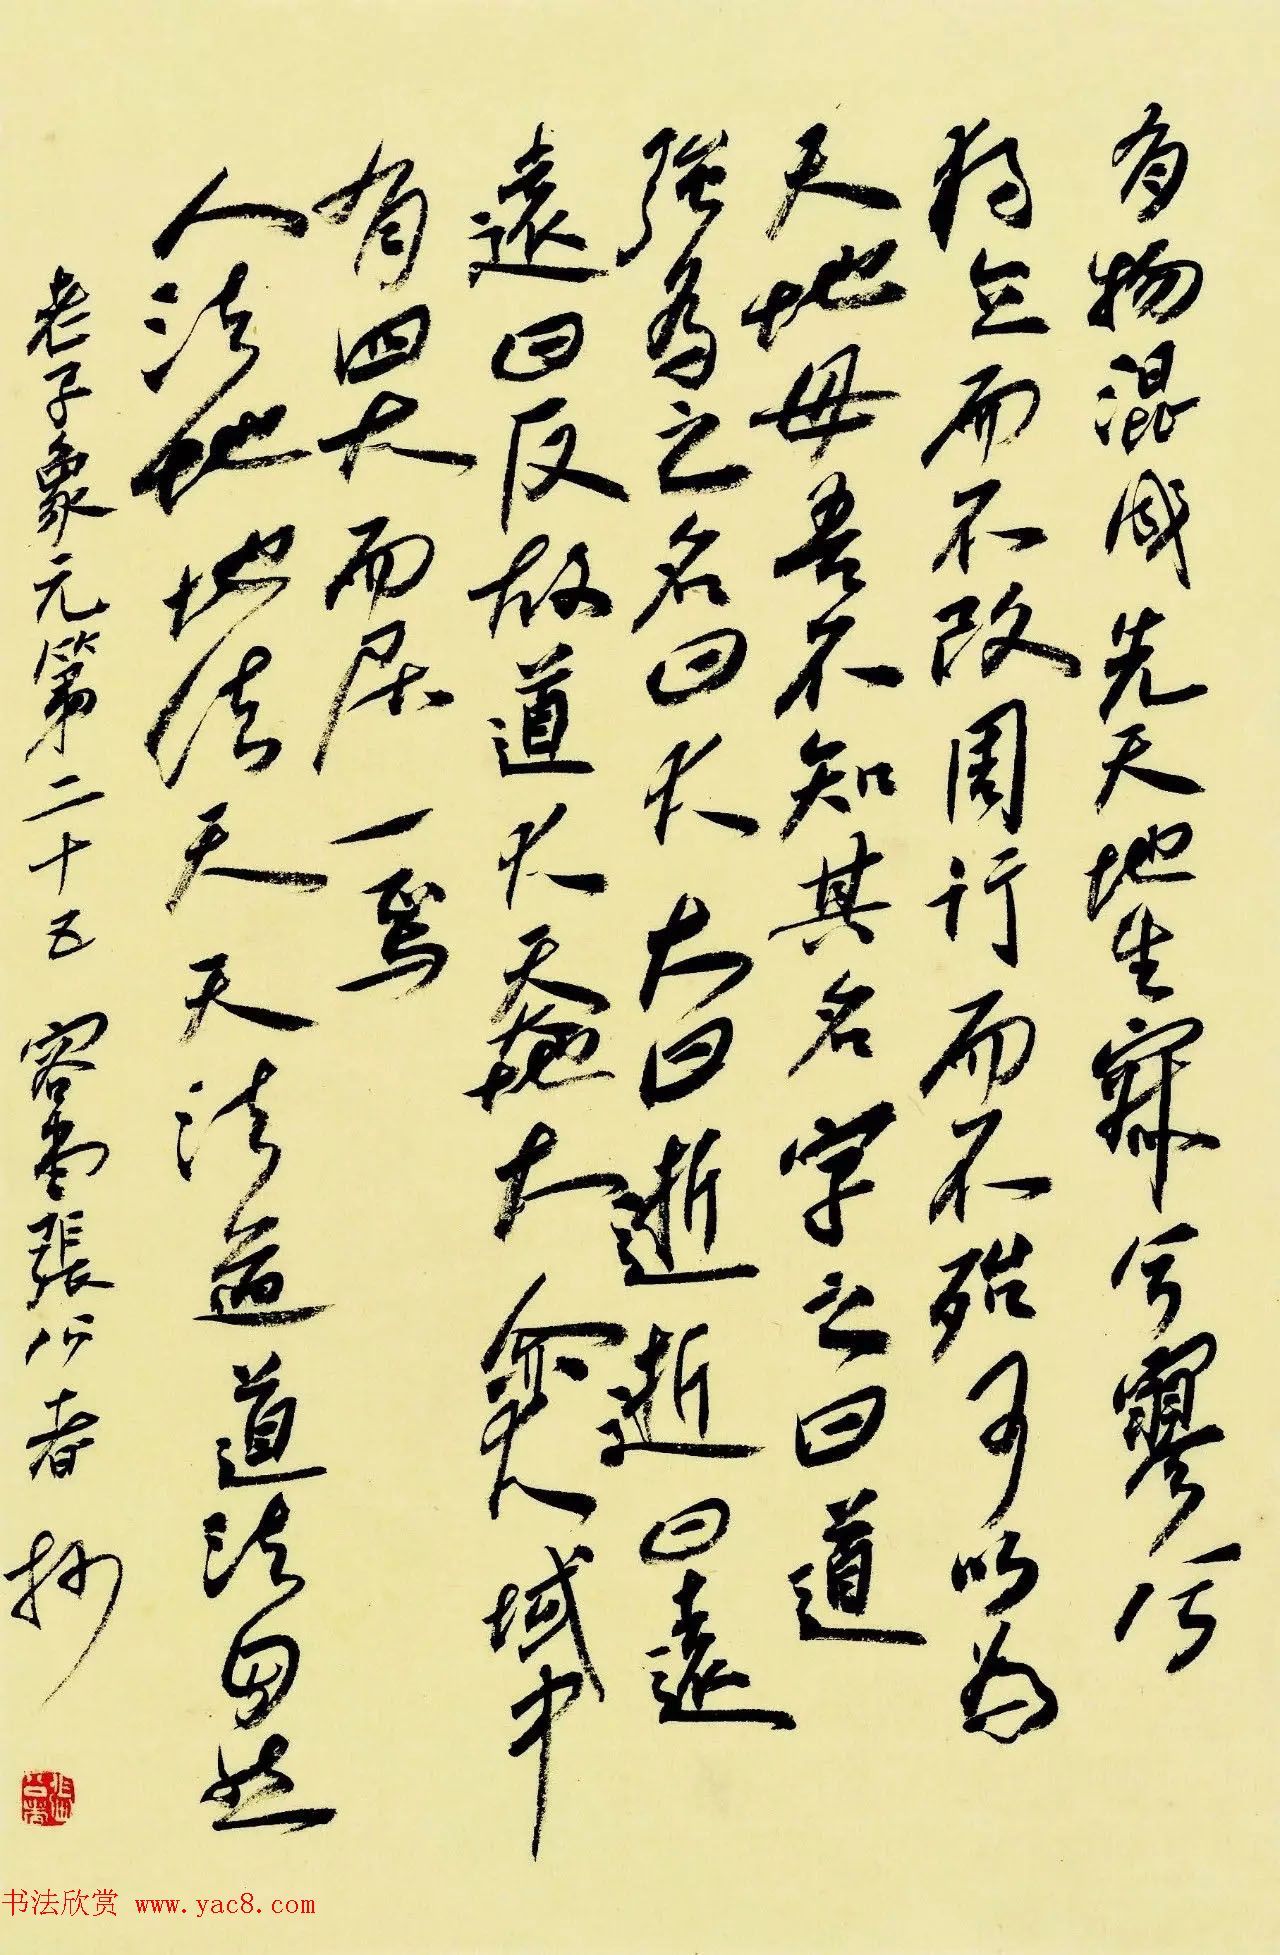 有物混成先天地生寂兮寥兮
獨立而不改周行而不殆可以為
天地母吾不知其名字之曰道
強為之名曰大大曰逝逝曰遠
遠曰反故道大天地大人亦大域中
有四大而居一焉
人法地地法天天法道道法自然
老子象元第二十五 容堂張公者抄
书法欣赏 www.yac8.com